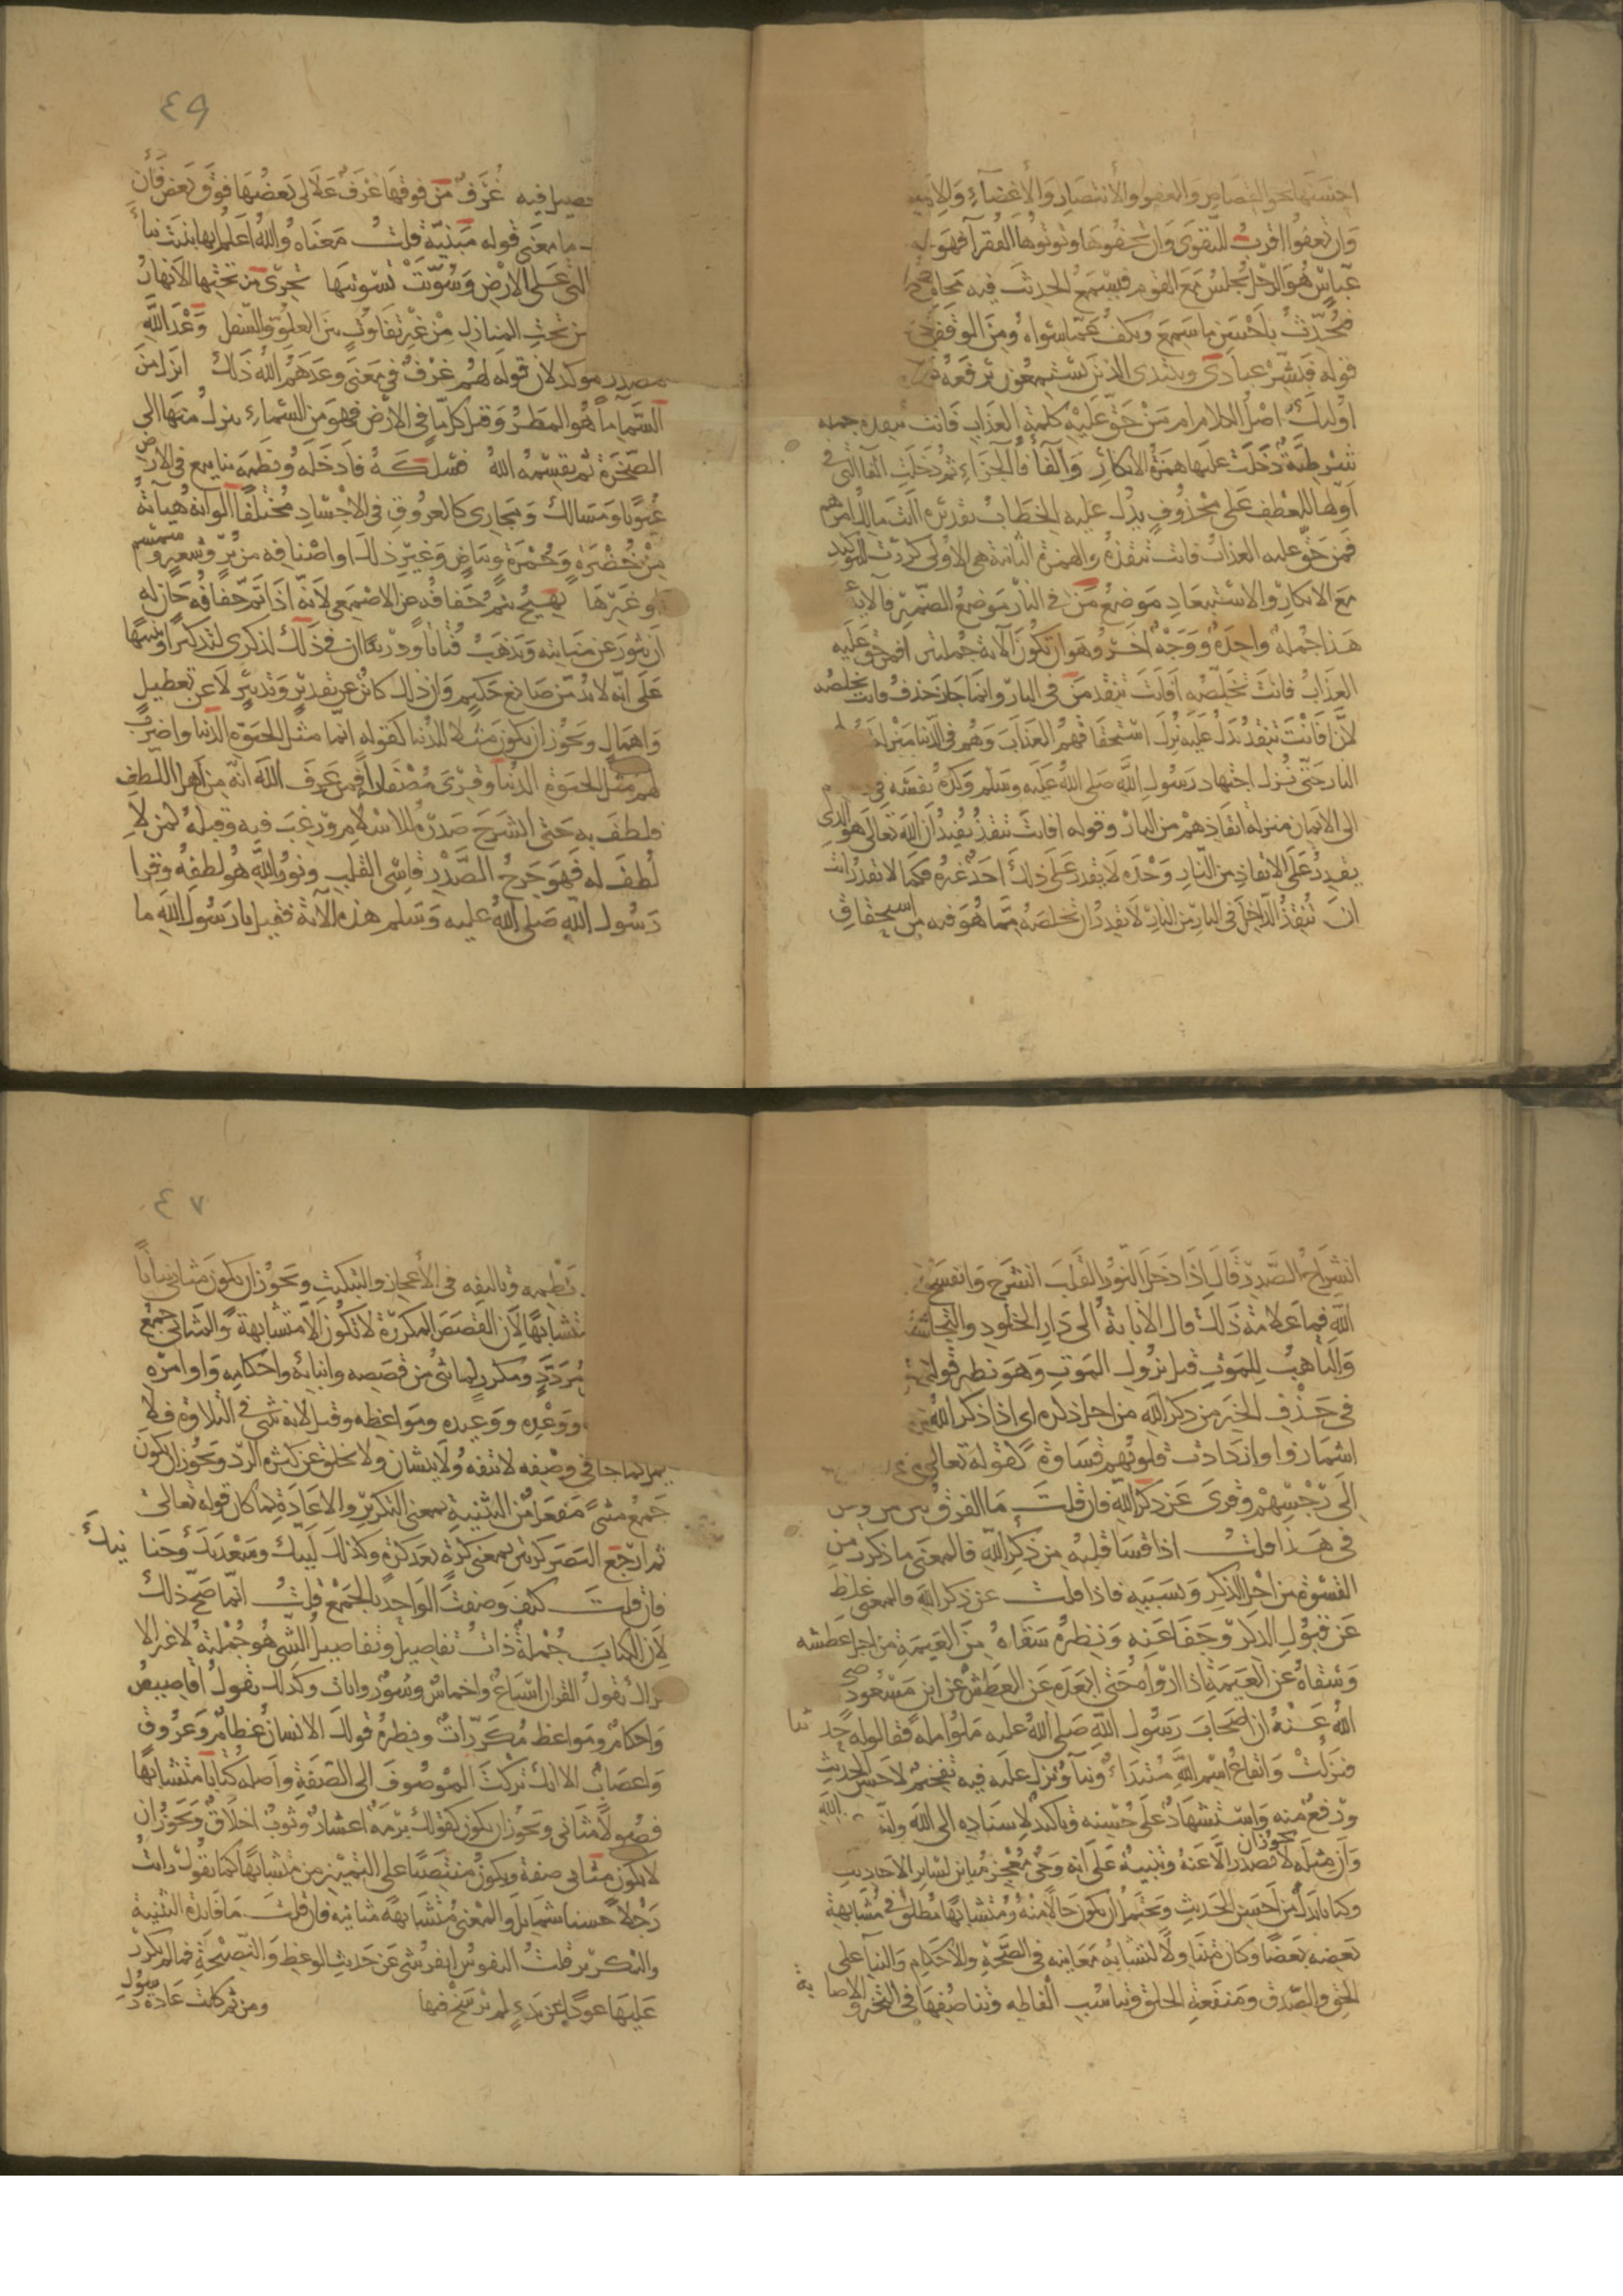 احسنها نحو القصاص والعفو والانتصار والاغضاء والابد
وان تعفوا اقرب للتقوى وان تخفوها وتوتوها الفقرآ فهو
عباس هو الرجل يجلس مع القوم فيسمع الحديث فيه محاسن
فيحدث باحسن ما سمع ويكف عما سواه ومن الوقفة
قوله فبشر عبادى ويبتدى الذين يستمعون يرفعونه
اولئك اصل الكلام امن حق عليه كلمة العذاب فانت تنقذه جملة
شرطية دخلت عليها همزة الانكار والفآ فآ الجزاء ثم دخلت الفآ التى فى
اولها للعطف على محذوف يدل عليه الخطاب تقديره اانت مالك امرهم
فمن حق عليه العذاب فانت تنقذه والهمزة الثانية هى الاولى كررت لتوكيد
مع الانكار والاستبعاد موضع من فى النار موضع الضمير فالاية
هذا جملة واحدة ووجه اخر وهو ان تكون الآية جملتين افمن حق عليه
العذاب فانت تخلصه افانت تنقذ من فى النار وانما جاز حذف فانت تخلصه
لان افانت تنقذ يدل عليه نزل استحقاقهم العذاب وهم فى الدنيا منزلة
النار حتى نزل اجتهاد رسول الله صلى الله عليه وسلم وكده نفسه فى
الى الايمان منزلة انقاذهم من النار وقوله افانت تنقذ يفيد ان الله تعالى هو الذى
يقدر على الانقاذ من النار وحده لا يقدر على ذلك احد غيره فكما لا تقدر انت
ان تنقذ الداخل فى النار من النار لا تقدر ان تخلصه مما هو فيه من استحقاق
٤٩
فصيل فيه غرف من فوقها غرف علالى بعضها فوق بعض فان
ما معنى قوله مبنية قلت معناه والله اعلم انها بنيت بنآ
التى على الارض وسويت تسويتها تجرى من تحتها الانهار
من تحت المنازل من غير تفاوت بين العلو والسفل وعد الله
مصدر موكد لان قوله لهم غرف فى معنى وعدهم الله ذلك انزل من
السمآ مآ هو المطر وقيل كل مآ فى الارض فهو من السماء ينزل منها الى
الصخرة ثم يقسمه الله فسلكه فادخله ونظمه ينابيع فى الارض
عيونا ومسالك ومجارى كالعروق فى الاجساد مختلفا الوانه هيآته
من خضرة وحمرة وبياض وغير ذلك او اصنافه من بر وشعير وسمسم
او غيرها يهيج يتم جفافه عن الاصمعى لانه اذا تم جفافه حان له
ان يثور عن منابته ويذهب فتاتا ودرينا ان فى ذلك لذكرى لتذكيرا وتنبيها
على انه لا بد من صانع حكيم وان ذلك كائن عن تقدير وتدبير لا عن تعطيل
واهمال ويجوز ان يكون مثلا للدنيا كقوله انما مثل الحيوة الدنيا واضرب
لهم مثل الحيوة الدنيا وقرى مصفارا فمن عرف الله انه من اهل اللطف
فلطف به حتى انشرح صدره للاسلام ورغب فيه وقبله كمن لا
لطف له فهو حرج الصدر قاسى القلب ونور الله هو لطفه وقرا
رسول الله صلى الله عليه وسلم هذه الآية فقيل يا رسول الله ما
انشراح الصدر قال اذا دخل النور القلب انشرح وانفسح
الله فما علامة ذلك قال الانابة الى دار الخلود والتجافى
والتاهب للموت قبل نزول الموت وهو نظير قوله
فى حذف الخبر من ذكر الله من اجل ذكره اى اذا ذكر الله
اشمازوا وازدادت قلوبهم قساوة كقوله تعالى
الى رجسهم وقرى عن ذكر الله فان قلت ما الفرق بين من وعن
فى هذا قلت اذا قسا قلبه من ذكر الله فالمعنى ما ذكرت من
القسوة من اجل الذكر وبسببه فاذا قلت عن ذكر الله فالمعنى غلظ
عن قبول الذكر وجفا عنه ونظيره سقاه من العيمة من اجل عطشه
وسقاه عن العيمة اذا ارواه حتى ابعده عن العطش عن ابن مسعود
الله عنه ان اصحاب رسول الله صلى الله عليه ملوا ملة فقالوا له حدثنا
فنزلت وايقاع اسم الله مبتداء وبنآ ونزل عليه فيه تفخيم لاحسن الحديث
ورفع منه واستشهاد على حسنه وتاكيد لاسناده الى الله وانه
وان مثله لا يجوز ان يصدر الا عنه وتنبيه على انه وحى معجز مباين لساير الاحاديث
وكتابا بدل من احسن الحديث ويحتمل ان يكون حالا منه ومتشابها مطلق فى مشابهة
بعضه بعضا وكان متناولا لتشابه معانيه فى الصحة والاحكام والبنآ على
الحق والصدق ومنفعة الخلق وتناسب الفاظه وتناصفها فى التخير والاصابة
٤٧
نظمه وتاليفه فى الاعجاز والتبكيت ويجوز ان يكون مثانى بيانا
متشابها لان القصص المكررة لا تكون الا متشابهة والمثانى جمع
مردد ومكرر لما ثنى من قصصه وانبائه واحكامه واوامره
ووعده ووعيده ومواعظه وقيل لانه يثنى فى التلاوة فلا
يمل كما جا فى وصفه لا يتفه ولا يتشان ولا يخلق عن كثرة الرد ويجوز ان يكون
جمع مثنى مفعل من التثنية بمعنى التكرير والاعادة كما كان قوله تعالى
ثم ارجع البصر كرتين بمعنى كرة بعد كرة وكذلك لبيك وسعديك وحنانيك
فان قلت كيف وصفت الواحد بالجمع قلت انما صح ذلك
لان الكتاب جملة ذات تفاصيل وتفاصيل الشى هو جملته لا غير الا
تراك تقول القران اسباع واخماس وسور وايات وكذلك تقول اقاصيص
واحكام ومواعظ مكررات ونظيره قولك الانسان عظام وعروق
واعصاب الا انك تركت الموصوف الى الصفة واصله كتابا متشابها
فصولا مثانى ويجوز ان يكون كقولك برمة اعشار وثوب اخلاق ويجوز ان
لا يكون مثانى صفة ويكون منتصبا على التمييز من متشابها كما تقول رايت
رجلا حسنا شمايل والمعنى متشابهة مثانيه فان قلت ما فايدة التثنية
والتكرير قلت النفوس انفر شى عن حديث الوعظ والنصيحة فما لم يكرر
عليها عودا عن بدء لم يرسخ فيها ومن ثم كانت عادة رسول